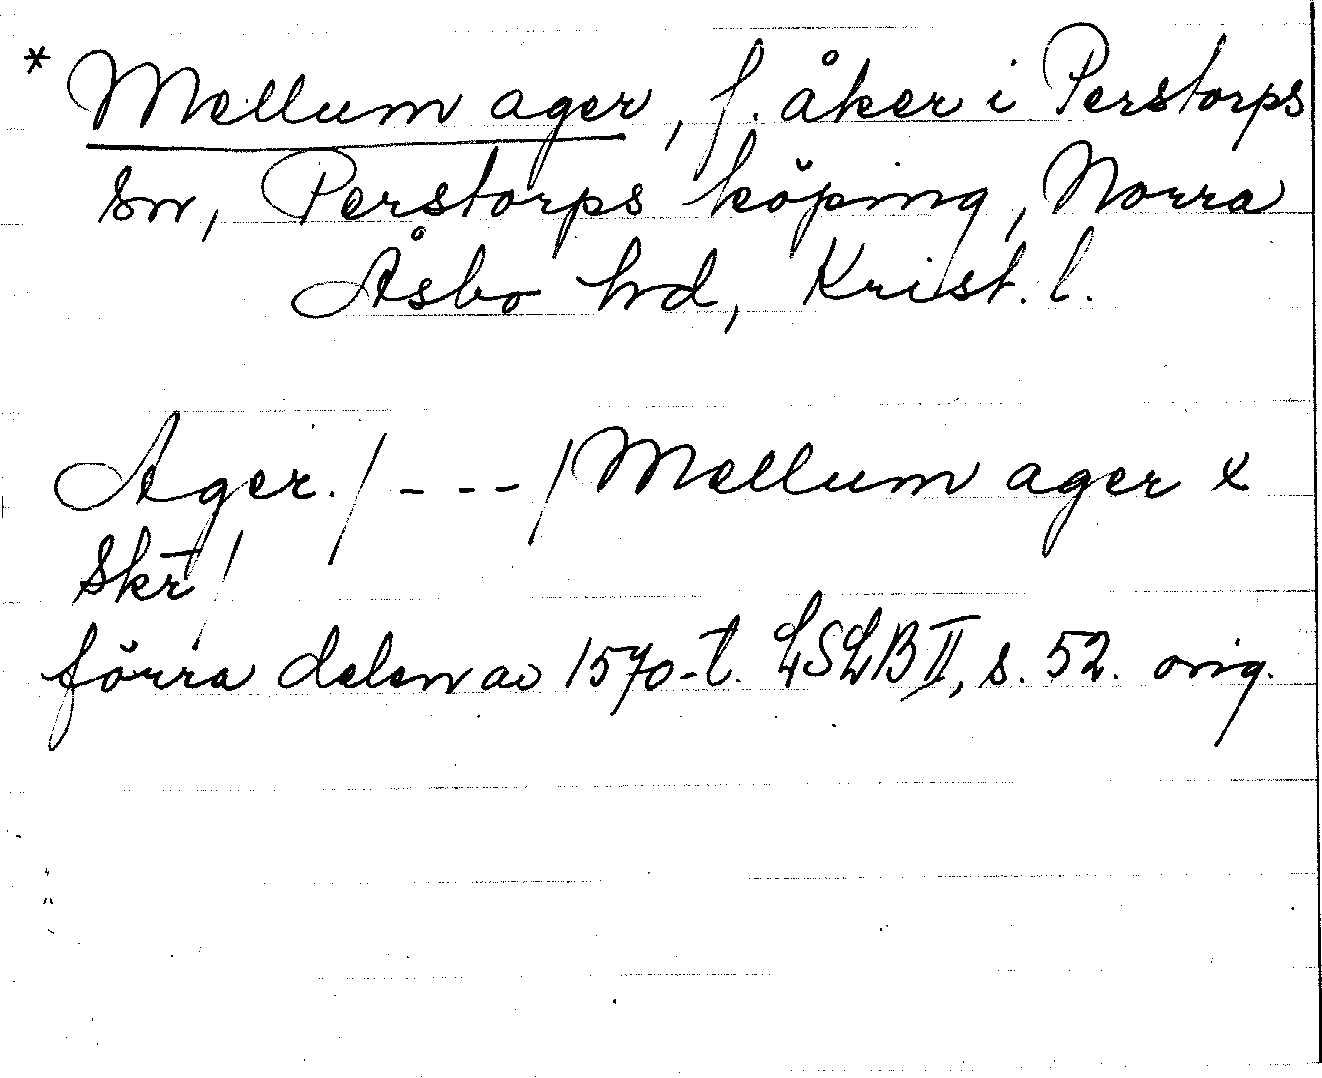 * Mellum ager, f. åker i Perstorps
sn, Perstorps köping, Norra
Åsbo hd, Krist. l.
Ager. / - - - / Mellum ager x
Skr̄ /
förra delen av 1570-t. LSLB II, s. 52. orig.